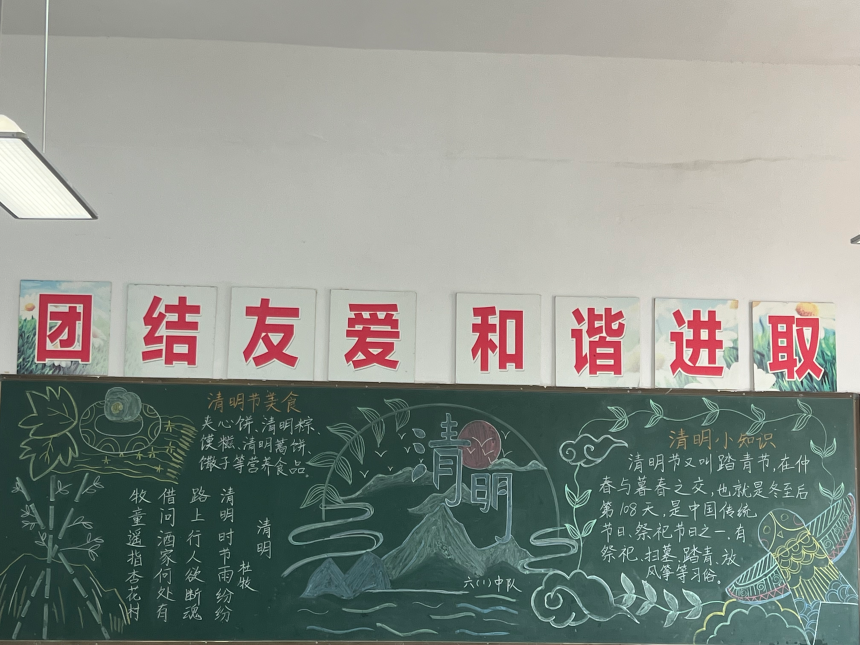 团结友爱和谐进取
清明节美食
夹心饼、清明粽、
馍糍、清明蒿饼
馓子等营养食品
清明
杜牧
清明时节雨纷纷
路上行人欲断魂
借问酒家何处有
牧童遥指杏花村
清明
六(1)中队
清明小知识
清明节又叫踏青节,在仲
春与暮春之交,也就是冬至后
第108天,是中国传统
节日、祭祀节日之一,有
祭祀、扫墓、踏青、放
风筝等习俗。